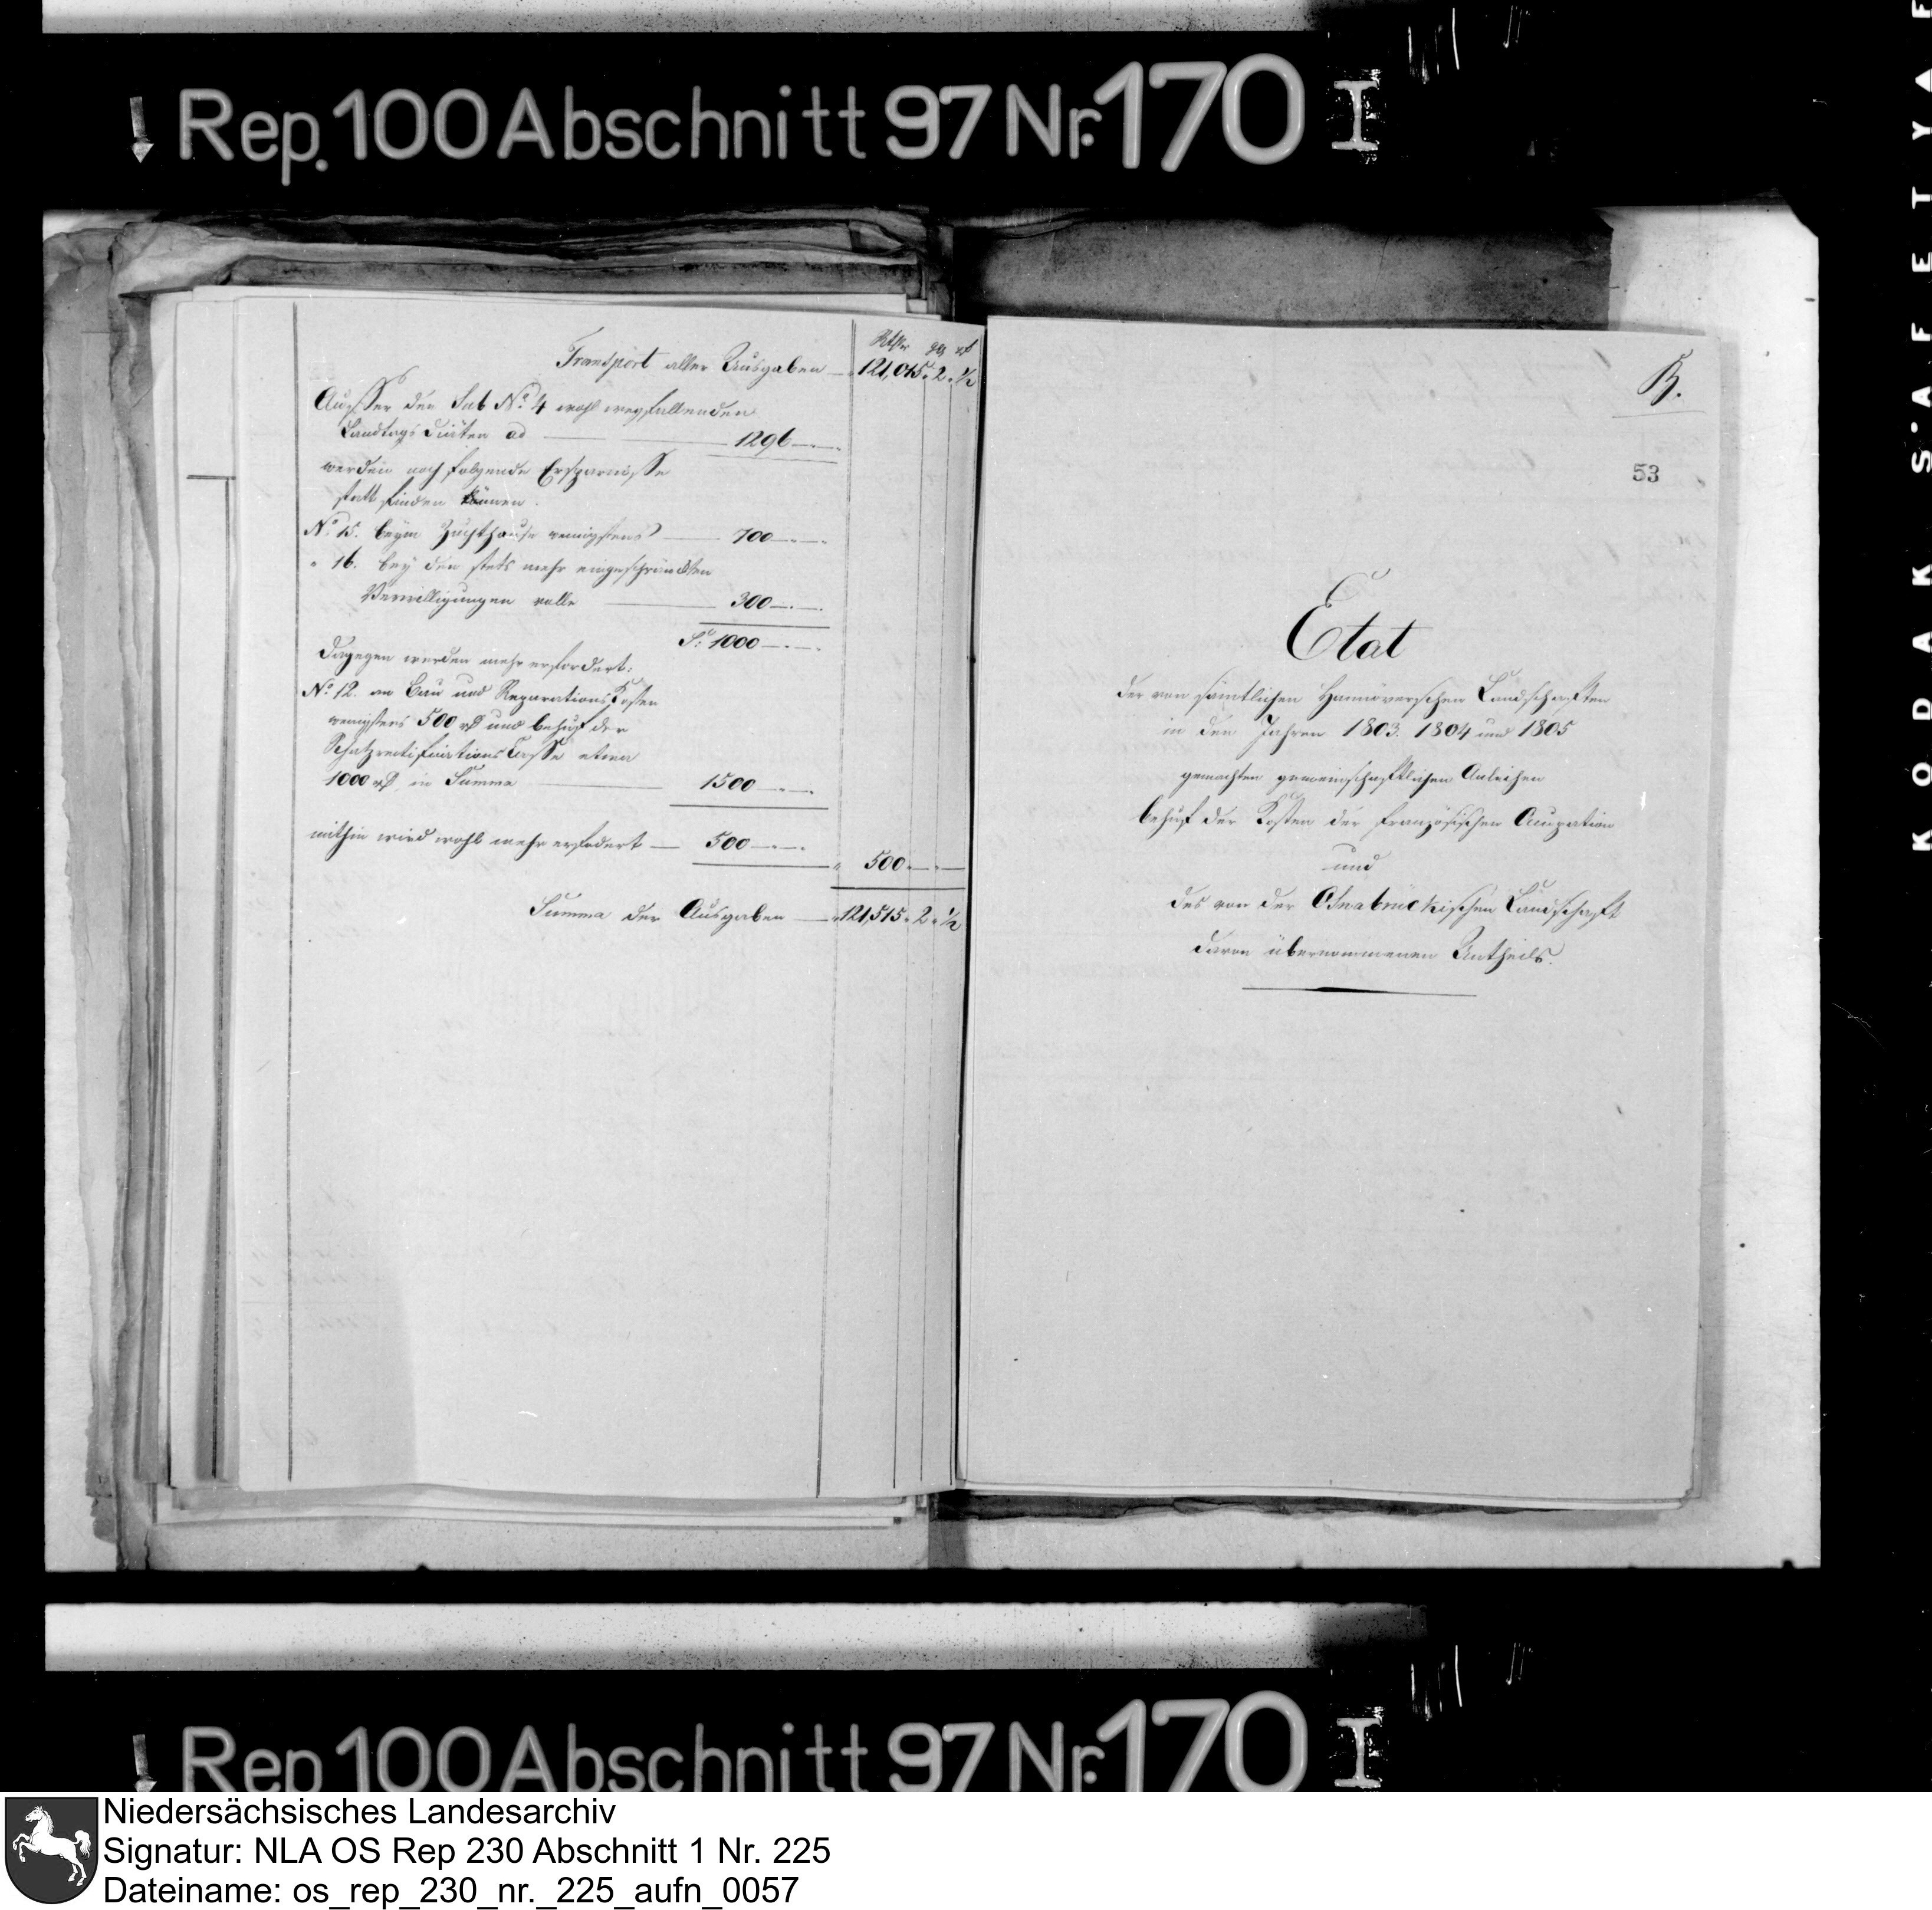 Rep. 100 Abschnitt 97 Nr. 170 I
Rthlr ggr ₰
Transport aller Ausgaben — 121,015. 2. ½
Ausser den sub No. 4 wohl wegfallenden
Landtags Diäten ad — 1296
werden noch folgende Ersparnisse
statt finden können.
No. 15. beym Zuchthause wenigstens — 700
" 16. bey den stets mehr eingeschränkten
Verwilligungen — 300
Sa. 1000
Dagegen werden mehr erfordert:
No. 12. an Bau und Reparations Kosten
wenigstens 500 rß und behuf der
Schatzrectifications Casse etwa
1000 rß, in Summa — 1500
mithin wird wohl mehr erfodert — 500
" 500
Summa der Ausgaben — 121,515. 2. ½
B.
53
Etat
der von sämtlichen Hannöverschen Landschaften
in den Jahren 1803. 1804 und 1805
gemachten gemeinschaftlichen Anleihen
behuf der Kosten der französischen Occupation
und
des von der Osnabrückischen Landschaft
davon übernommenen Antheils.
Rep 100 Abschnitt 97 Nr. 170 I
KODAK SAFETY
Niedersächsisches Landesarchiv
Signatur: NLA OS Rep 230 Abschnitt 1 Nr. 225
Dateiname: os_rep_230_nr._225_aufn_0057